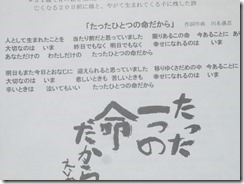 亡くなる２００前に彼と、やがて生まれてくる子に残した詩
「たったひとつの命だから」
人として生まれたことを　当たり前だと思っていました　限りあるこの命　今あることに
大切なのは　いま　昨日でもなく　明日でもなく　幸せになれるのは　いま
あなただけの　わたしだけの　たったひとつの命だから
明日もまた今日とおなじに　迎えられると思っていました　移りゆくさだめの中　今あることに
大切なのは　いま　悲しいときも　苦しいときも　幸せになれるのは　いま
辛いときは　泣いてもいい　たったひとつの命だから
たった
一つの
命
だから